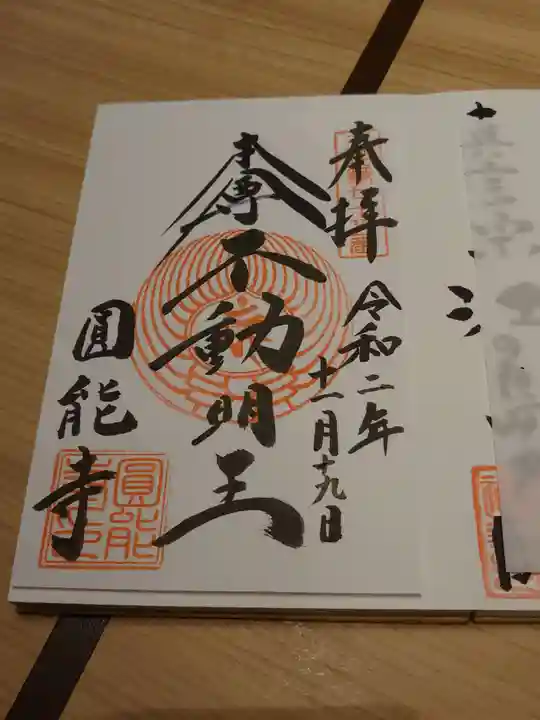 奉拝
令和二年
十一月十九日
本尊
不動明王
圓能寺
圓能
寺印